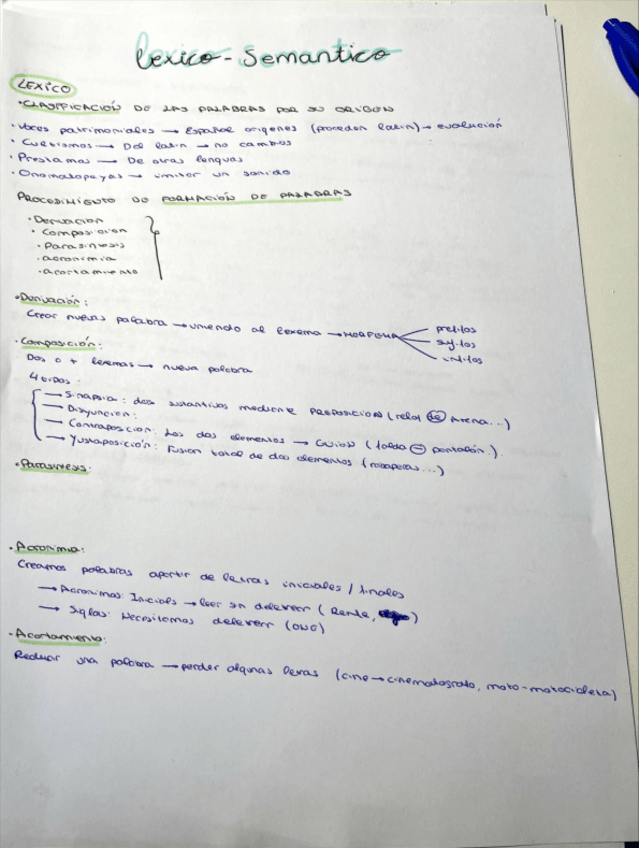 Lexico - Semantico
LEXICO
• CLASIFICACIÓN DE LAS PALABRAS POR SU ORIGEN
• Voces patrimoniales → Español origenes (proceden latin) → evolución
• Cultismos → Del latin → no cambios
• Prestamos → De otras lenguas
• Onomatopeyas → imitar un sonido
PROCEDIMIENTO DE FORMACIÓN DE PALABRAS
• Derivacion
• Composicion
• Parasintesis
• acronimia
• acortamiento
• Derivación:
Crear nuevas palabra → uniendo al lexema → MORFEMA prefijos
sufijos
infijos
• Composición:
Dos o + lexemas → nueva palabra
4 tipos:
→ Sinapsia: dos sustantivos mediante PREPOSICION (reloj de arena...)
→ Disyuncion:
→ Contraposicion: Los dos elementos → GUION (falda - pantalón.).
→ Yuxtaposición: Fusion total de dos elementos (rompeolas...)
• Parasintesis:
• Acronimia:
Creamos palabras apartir de letras iniciales / finales
→ Acronimos: Inicials → leer sin deletrear (Renfe, )
→ Siglas: Necesitamos deletrear (ONG)
• Acortamiento:
Reducir una palabra → perder algunas letras (cine → cinematografo, moto - motocicleta)